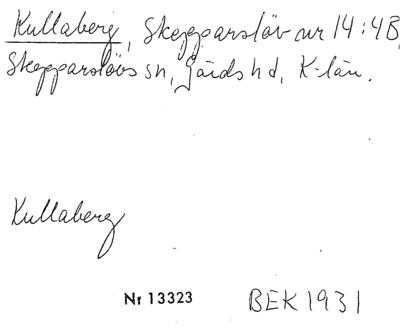 Kullaberg, Skepparslöv nr 14:4B,
Skepparslövs sn, Gärds hd, K-län.
Kullaberg
Nr 13323
BEK 1931